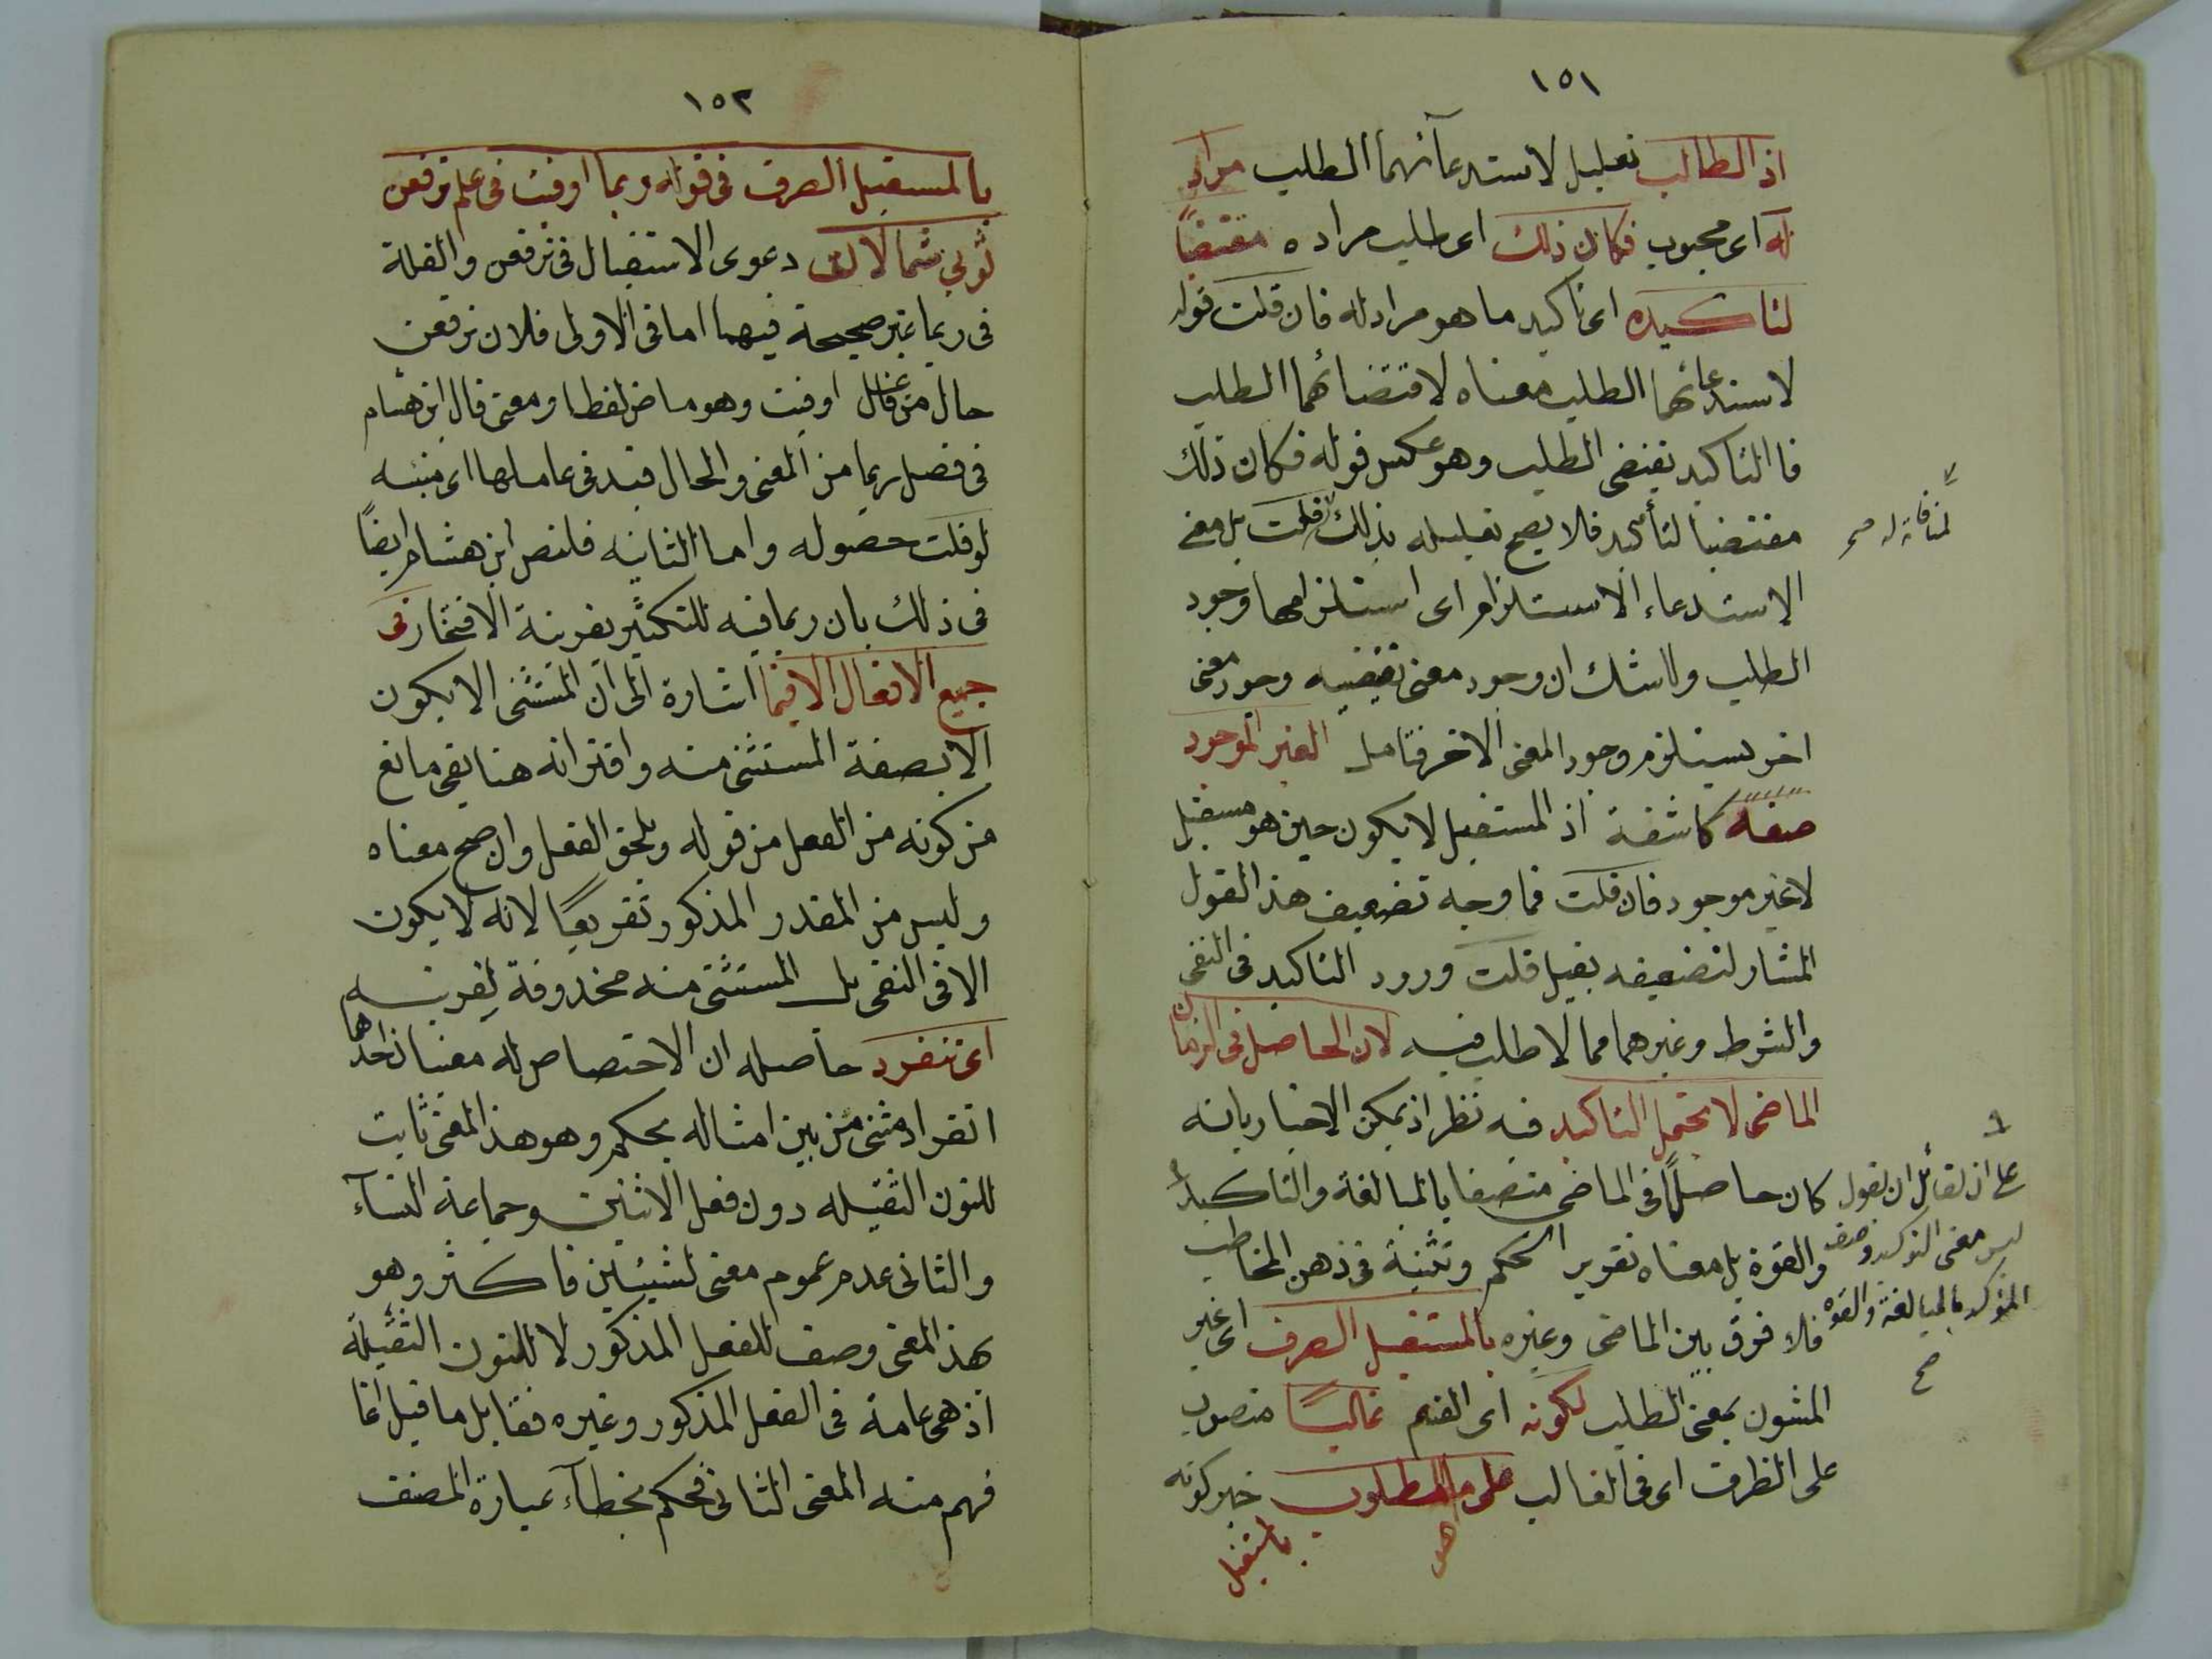 ١٥١
اذ الطالب تعليل لاستدعآئهما الطلب مراد
له اى محبوب فكان ذلك اى طلب مراده مقتضيًا
لتاكيده اى تاكيد ما هو مراد له فان قلت قوله
لاستدعائهما الطلب معناه لاقتضائهما الطلب
فالتاكيد يقتضى الطلب وهو عكس قوله فكان ذلك
مقتضيا لتأكيد فلا يصح تعليله بذلك قلت بل معنى
لمنافاته له صح
الاستدعاء الاستلزام اى استلزامهما وجود
الطلب ولا شك ان وجود معنى تقتضيه وجود معنى
اخر يستلزم وجود المعنى الاخر فتامل الغير الموجود
صفة كاشفة اذ المستقبل لا يكون حين هو مستقبل
لا غير موجود فان قلت فما وجه تضعيف هذا القول
المشار لتضعيفه بقيل قلت ورود التاكيد فى النفى
والشرط وغيرهما مما لا طلب فيه لان الحاصل فى الزمان
الماضى لا يحتمل التاكيد فيه نظر اذ يمكن الاخبار بانه
كان حاصلًا فى الماضى متصفا بالمبالغة والتاكيد
والقوة بل معناه تقرير الحكم وتثبيته فى ذهن المخاطب
فلا فرق بين الماضى وغيره بالمستقبل الصرف اى غير
على ان لقائل ان يقول
ليس معنى التوكيد وصف
المؤكد بالمبالغة والقوة
صح
المشوب بمعنى الطلب لكونه اى القسم غالبًا منصوب
على الظرف اى فى الغالب على ما هو المطلوب خبر كونه
بالمستقبل
١٥٢
بالمستقبل الصرف فى قوله ربما اوفيت فى علم ترفعن
ثوبى شمالات دعوى الاستقبال فى ترفعن والقلة
فى ربما غير صحيحة فيهما اما فى الاولى فلان ترفعن
حال من فاعل اوفيت وهو ماض لفظا ومعنى قال ابن هشام
فى فصل ربما من المغنى والحال قيد فى عاملها اى مثبته
لو قلت حصوله واما الثانيه فلنص ابن هشام ايضًا
فى ذلك بان ربما فيه للتكثير بقرينة الافتخار فى
جميع الافعال الا فيما اشارة الى ان المستثنى الا يكون
الا بصفة المستثنى منه واقترانه هنا بفى مانع
من كونه من الفعل من قوله ويلحق الفعل وان صح معناه
وليس من المقدر المذكور تفريعًا لانه لا يكون
الا فى النفى بل المستثنى منه محذوفة لقرينه
اى تنفرد حاصله ان الاختصاص له معنيان احدهما
انفراد شئ من بين امثاله بحكم وهو هذا المعنى ثابت
للنون الثقيله دون فعل الاثنين وجماعة النسآء
والثانى عدم عموم معنى لشيئين فاكثر وهو
بهذا المعنى وصف للفعل المذكور لا للنون الثقيلة
اذ هى عامة فى الفعل المذكور وغيره فقابل ما قيل انما
فهم منه المعنى الثانى فحكم بخطآء عبارة المصنف